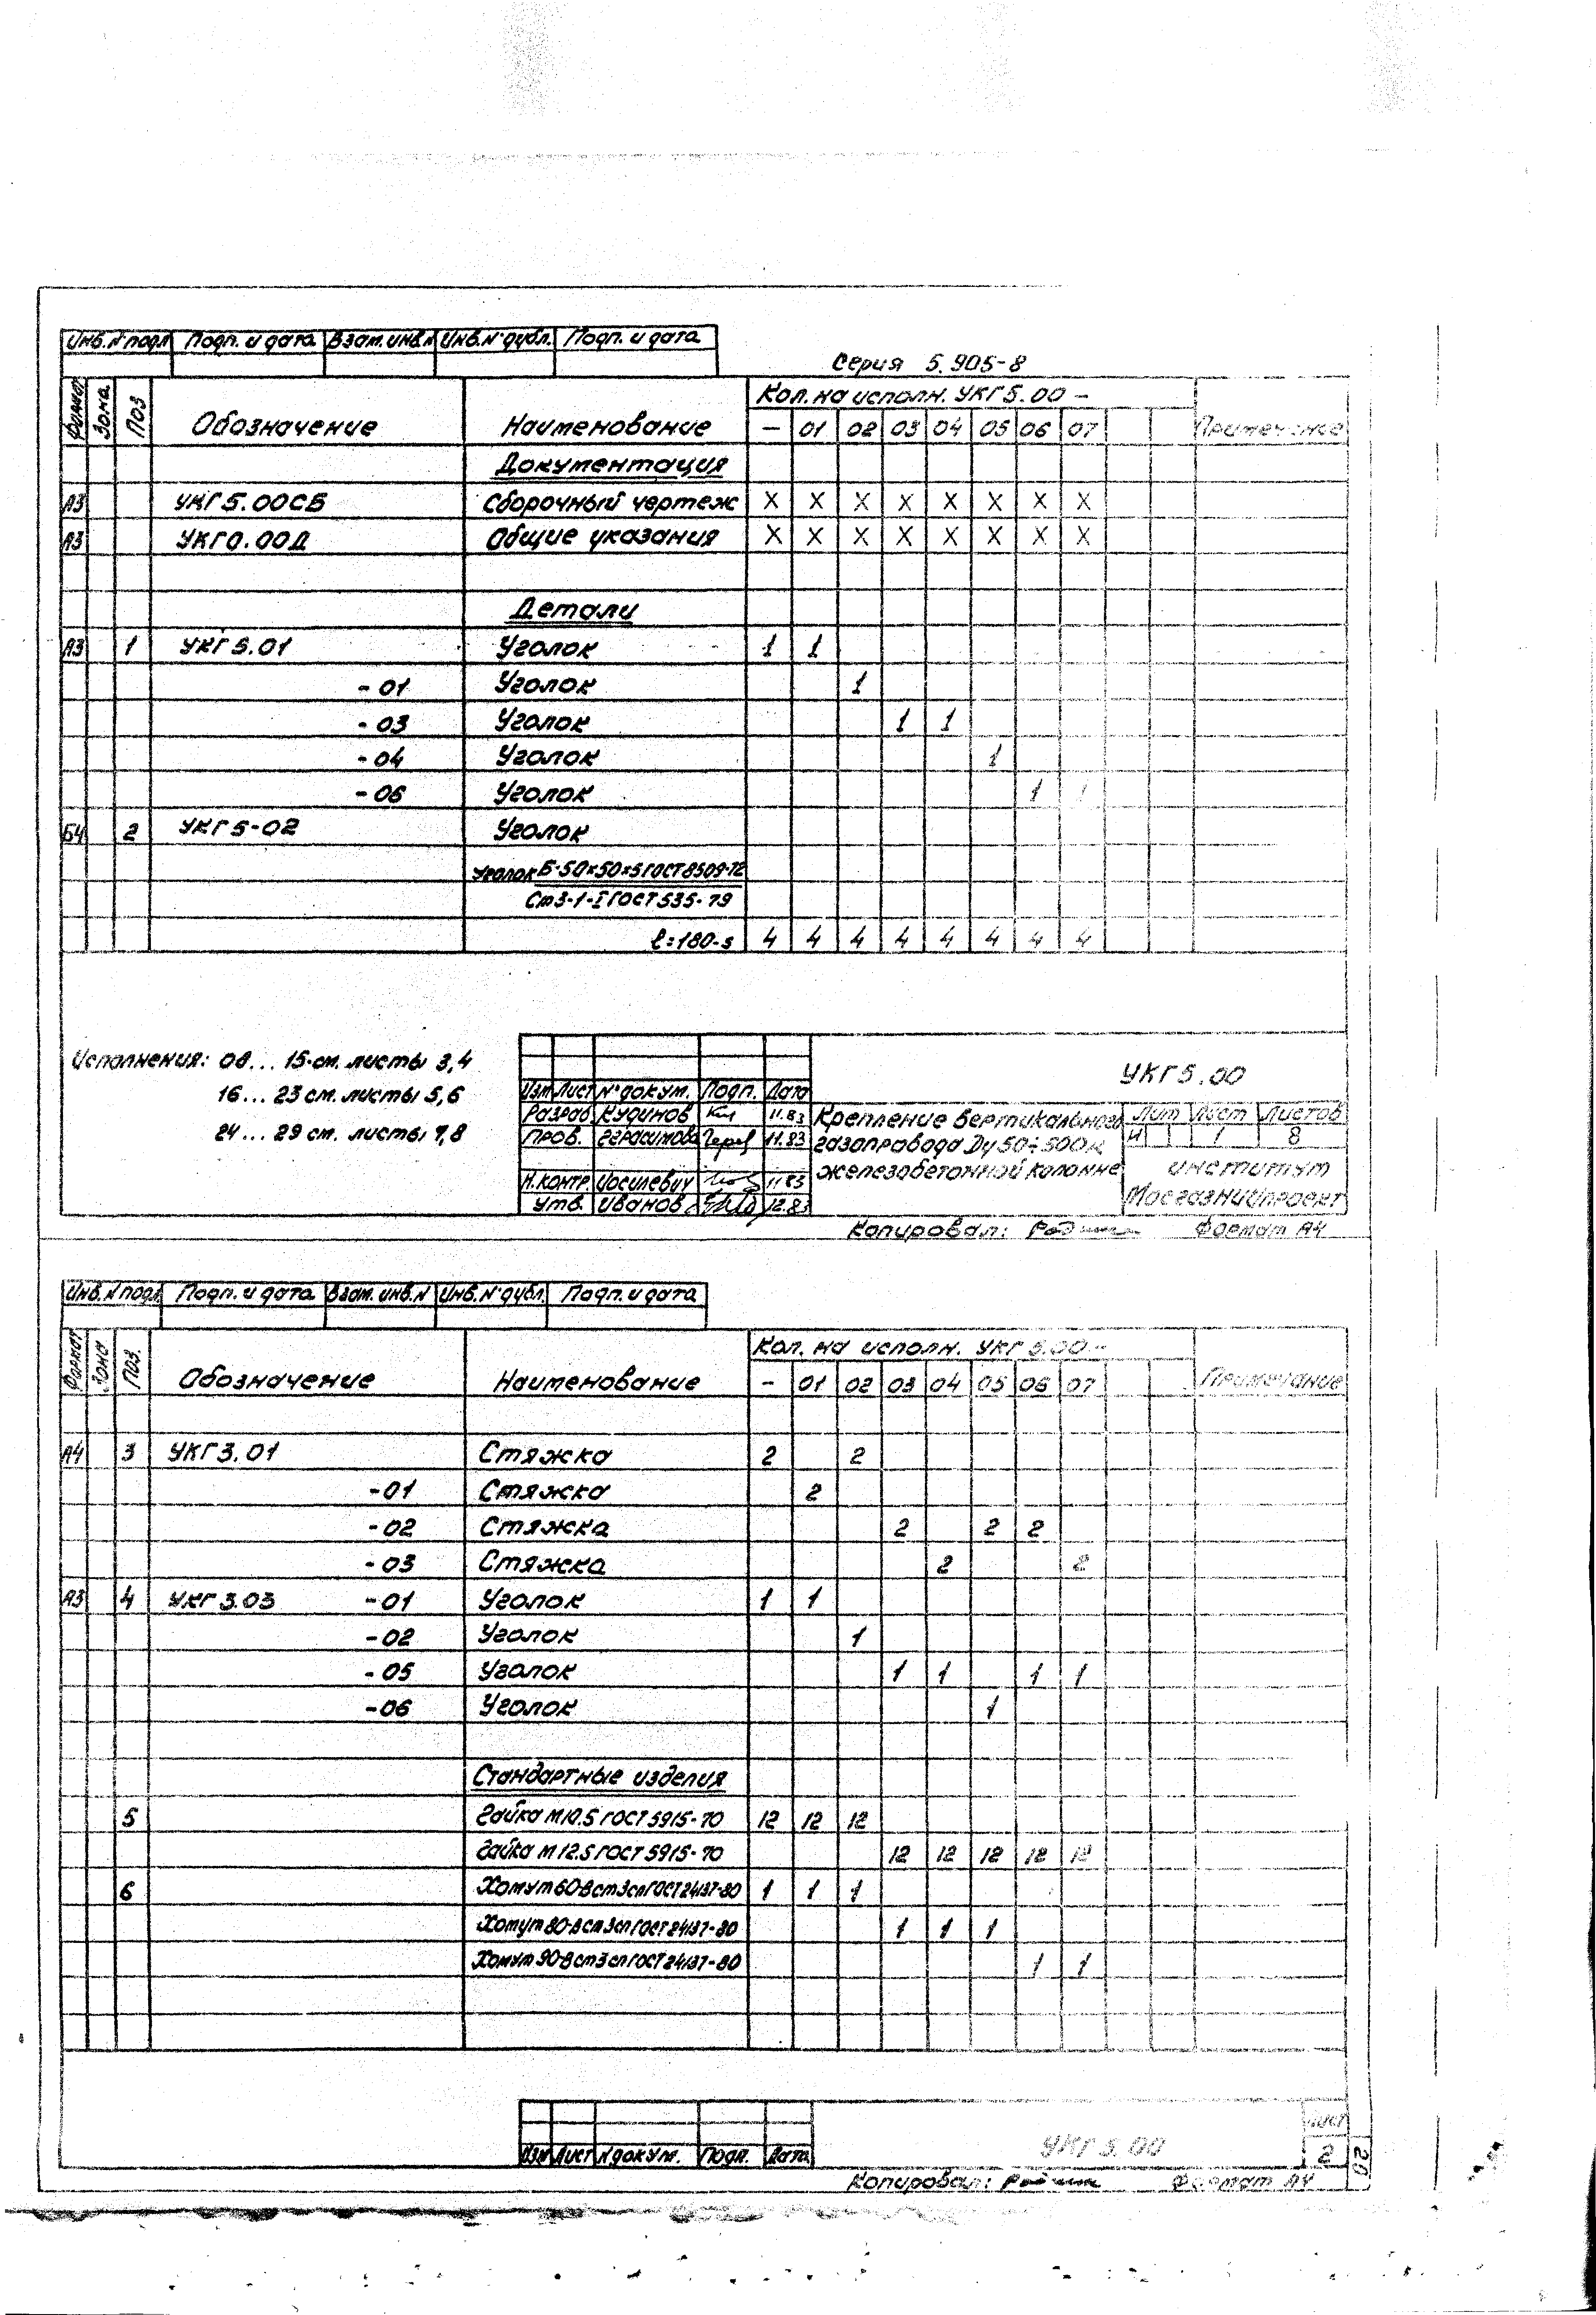 Инв.N подл Подп. и дата Взам. инв.N Инв.N°дубл. Подп. и дата
Серия 5.905-8
Формат Зона Поз Обозначение Наименование Кол. на исполн. УКГ5.00 – Примечание
– 01 02 03 04 05 06 07
Документация
А3 УКГ5.00СБ Сборочный чертеж X X X X X X X X
А3 УКГ0.00Д Общие указания X X X X X X X X
Детали
А3 1 УКГ5.01 Уголок 1 1
-01 Уголок 1
-03 Уголок 1 1
-04 Уголок 1
-06 Уголок 1 1
Б4 2 УКГ5-02 Уголок
Уголок Б-50х50х5 ГОСТ 8509-72
Ст3-1-I ГОСТ 535-79
ℓ=180-s 4 4 4 4 4 4 4 4
Исполнения: 08... 15-см. листы 3,4
16... 23 см. листы 5,6
24... 29 см. листы 7,8
Изм Лист N°докум. Подп. Дата
Разраб Кудинов 11.83
Пров. Герасимова 11.83
Н.контр. Иосилевич 11.83
Утв. Иванов 12.83
УКГ5.00
Крепление вертикального
газопровода Ду 50÷500 к
железобетонной колонне
Лит Лист Листов
И 1 8
институт
Мосгазниипроект
Копировал: Формат А4
Инв.N подл. Подп. и дата Взам. инв.N Инв.N°дубл. Подп. и дата
Формат Зона Поз. Обозначение Наименование Кол. на исполн. УКГ 5.00 – Примечание
– 01 02 03 04 05 06 07
А4 3 УКГ3.01 Стяжка 2 2
-01 Стяжка 2
-02 Стяжка 2 2 2
-03 Стяжка 2 2
А3 4 УКГ3.03 -01 Уголок 1 1
-02 Уголок 1
-05 Уголок 1 1 1 1
-06 Уголок 1
Стандартные изделия
5 Гайка М10.5 ГОСТ 5915-70 12 12 12
Гайка М12.5 ГОСТ 5915-70 12 12 12 12 12
6 Хомут 60-Вст3сп ГОСТ 24137-80 1 1 1
Хомут 80-Вст3сп ГОСТ 24137-80 1 1 1
Хомут 90-Вст3сп ГОСТ 24137-80 1 1
Изм Лист N докум. Подп. Дата
УКГ 5.00
Лист
2
20
Копировал: Формат А4